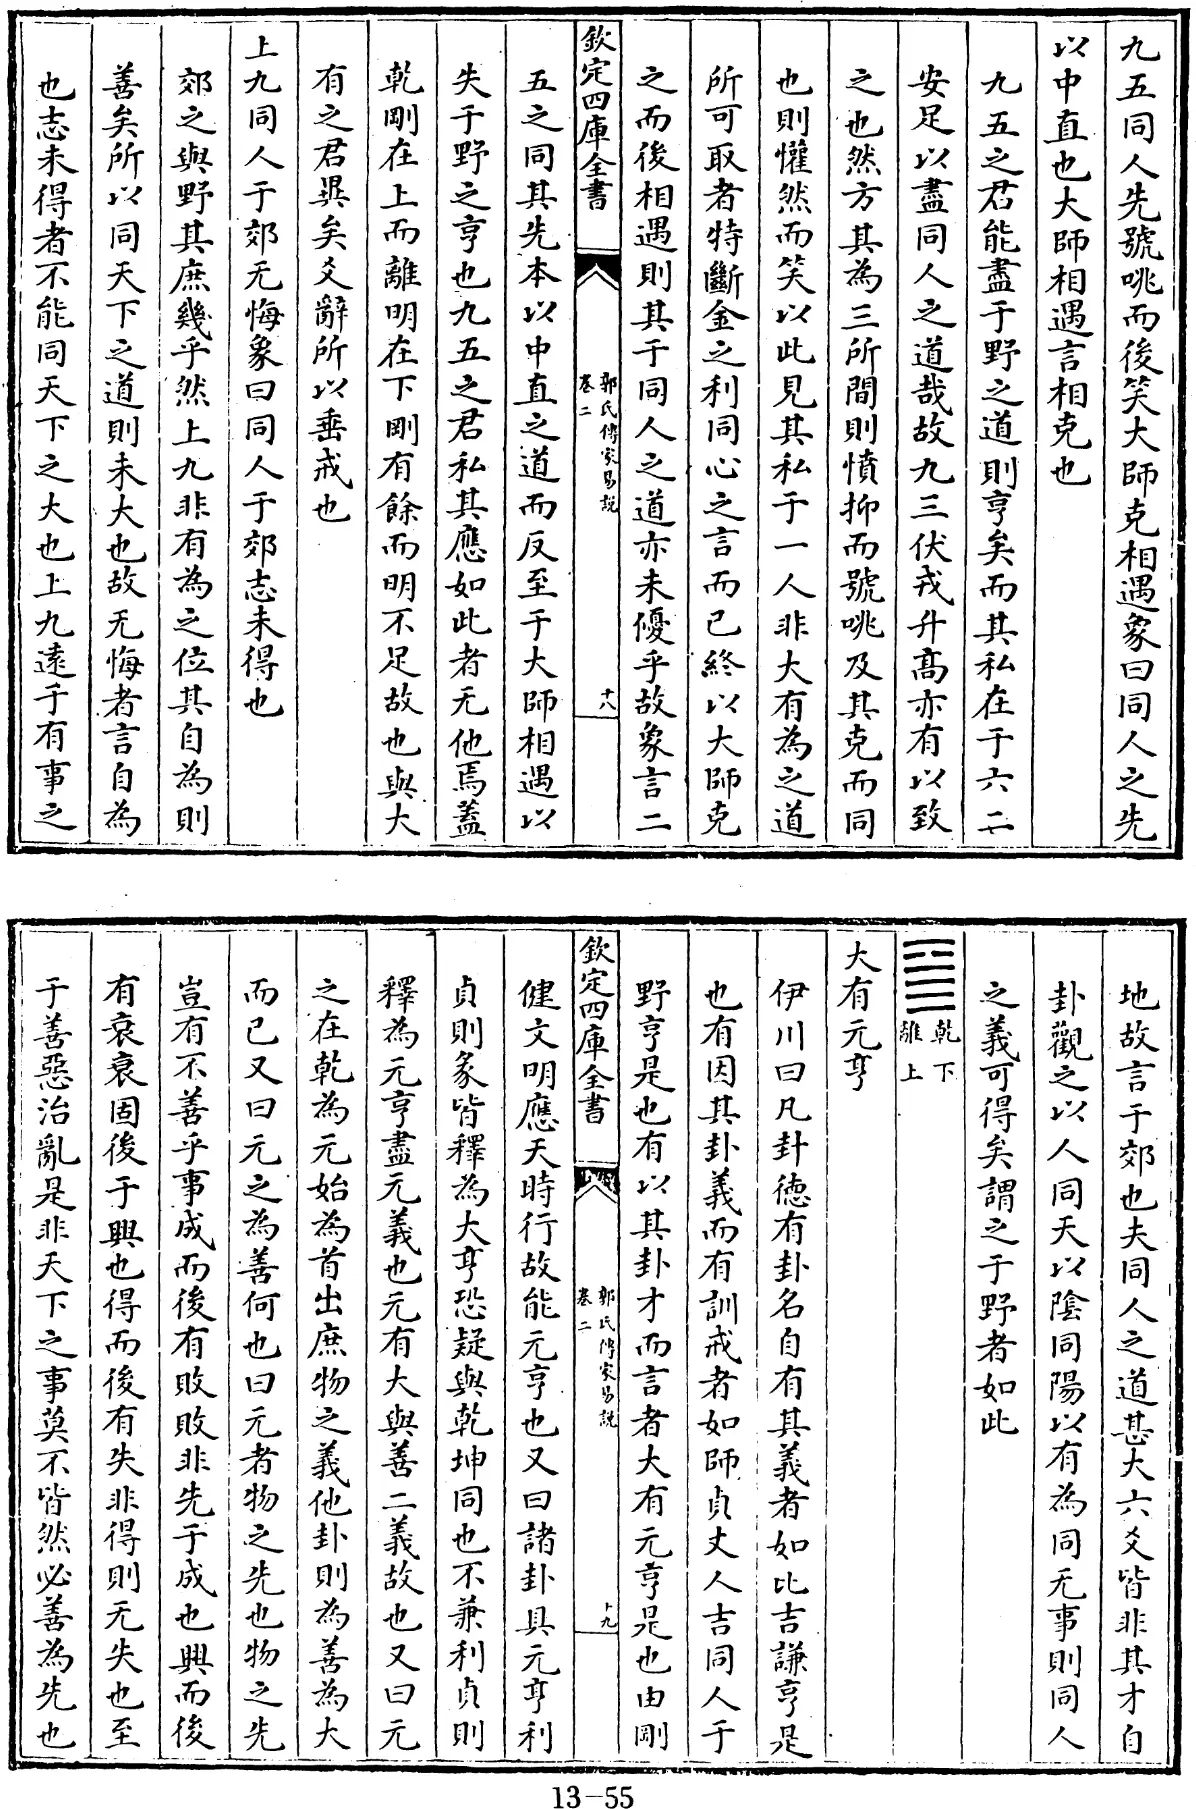 九五同人先號咷而後笑大師克相遇象曰同人之先
以中直也大師相遇言相克也
九五之君能盡于野之道則亨矣而其私在于六二
安足以盡同人之道哉故九三伏戎升高亦有以致
之也然方其為三所間則憤抑而號咷及其克而同
也則懽然而笑以此見其私于一人非大有為之道
所可取者特斷金之利同心之言而已終以大師克
之而後相遇則其于同人之道亦未優乎故象言二
欽定四庫全書
郭氏傳家易說
卷二
十八
五之同其先本以中直之道而反至于大師相遇以
失于野之亨也九五之君私其應如此者无他焉蓋
乾剛在上而離明在下剛有餘而明不足故也與大
有之君異矣爻辭所以垂戒也
上九同人于郊无悔象曰同人于郊志未得也
郊之與野其庶幾乎然上九非有為之位其自為則
善矣所以同天下之道則未大也故无悔者言自為
也志未得者不能同天下之大也上九遠于有事之
地故言于郊也夫同人之道甚大六爻皆非其才自
卦觀之以人同天以陰同陽以有為同无事則同人
之義可得矣謂之于野者如此
乾下
離上
大有元亨
伊川曰凡卦德有卦名自有其義者如比吉謙亨是
也有因其卦義而有訓戒者如師貞丈人吉同人于
野亨是也有以其卦才而言者大有元亨是也由剛
欽定四庫全書
郭氏傳家易說
卷二
十九
健文明應天時行故能元亨也又曰諸卦具元亨利
貞則彖皆釋為大亨恐疑與乾坤同也不兼利貞則
釋為元亨盡元義也元有大與善二義故也又曰元
之在乾為元始為首出庶物之義他卦則為善為大
而已又曰元之為善何也曰元者物之先也物之先
豈有不善乎事成而後有敗敗非先于成也興而後
有衰衰固後于興也得而後有失非得則无失也至
于善惡治亂是非天下之事莫不皆然必善為先也
13-55